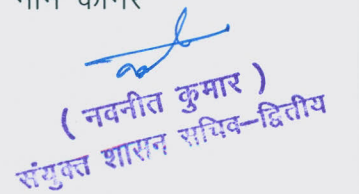 ( नवनीत कुमार )
संयुक्त शासन सचिव-द्वितीय